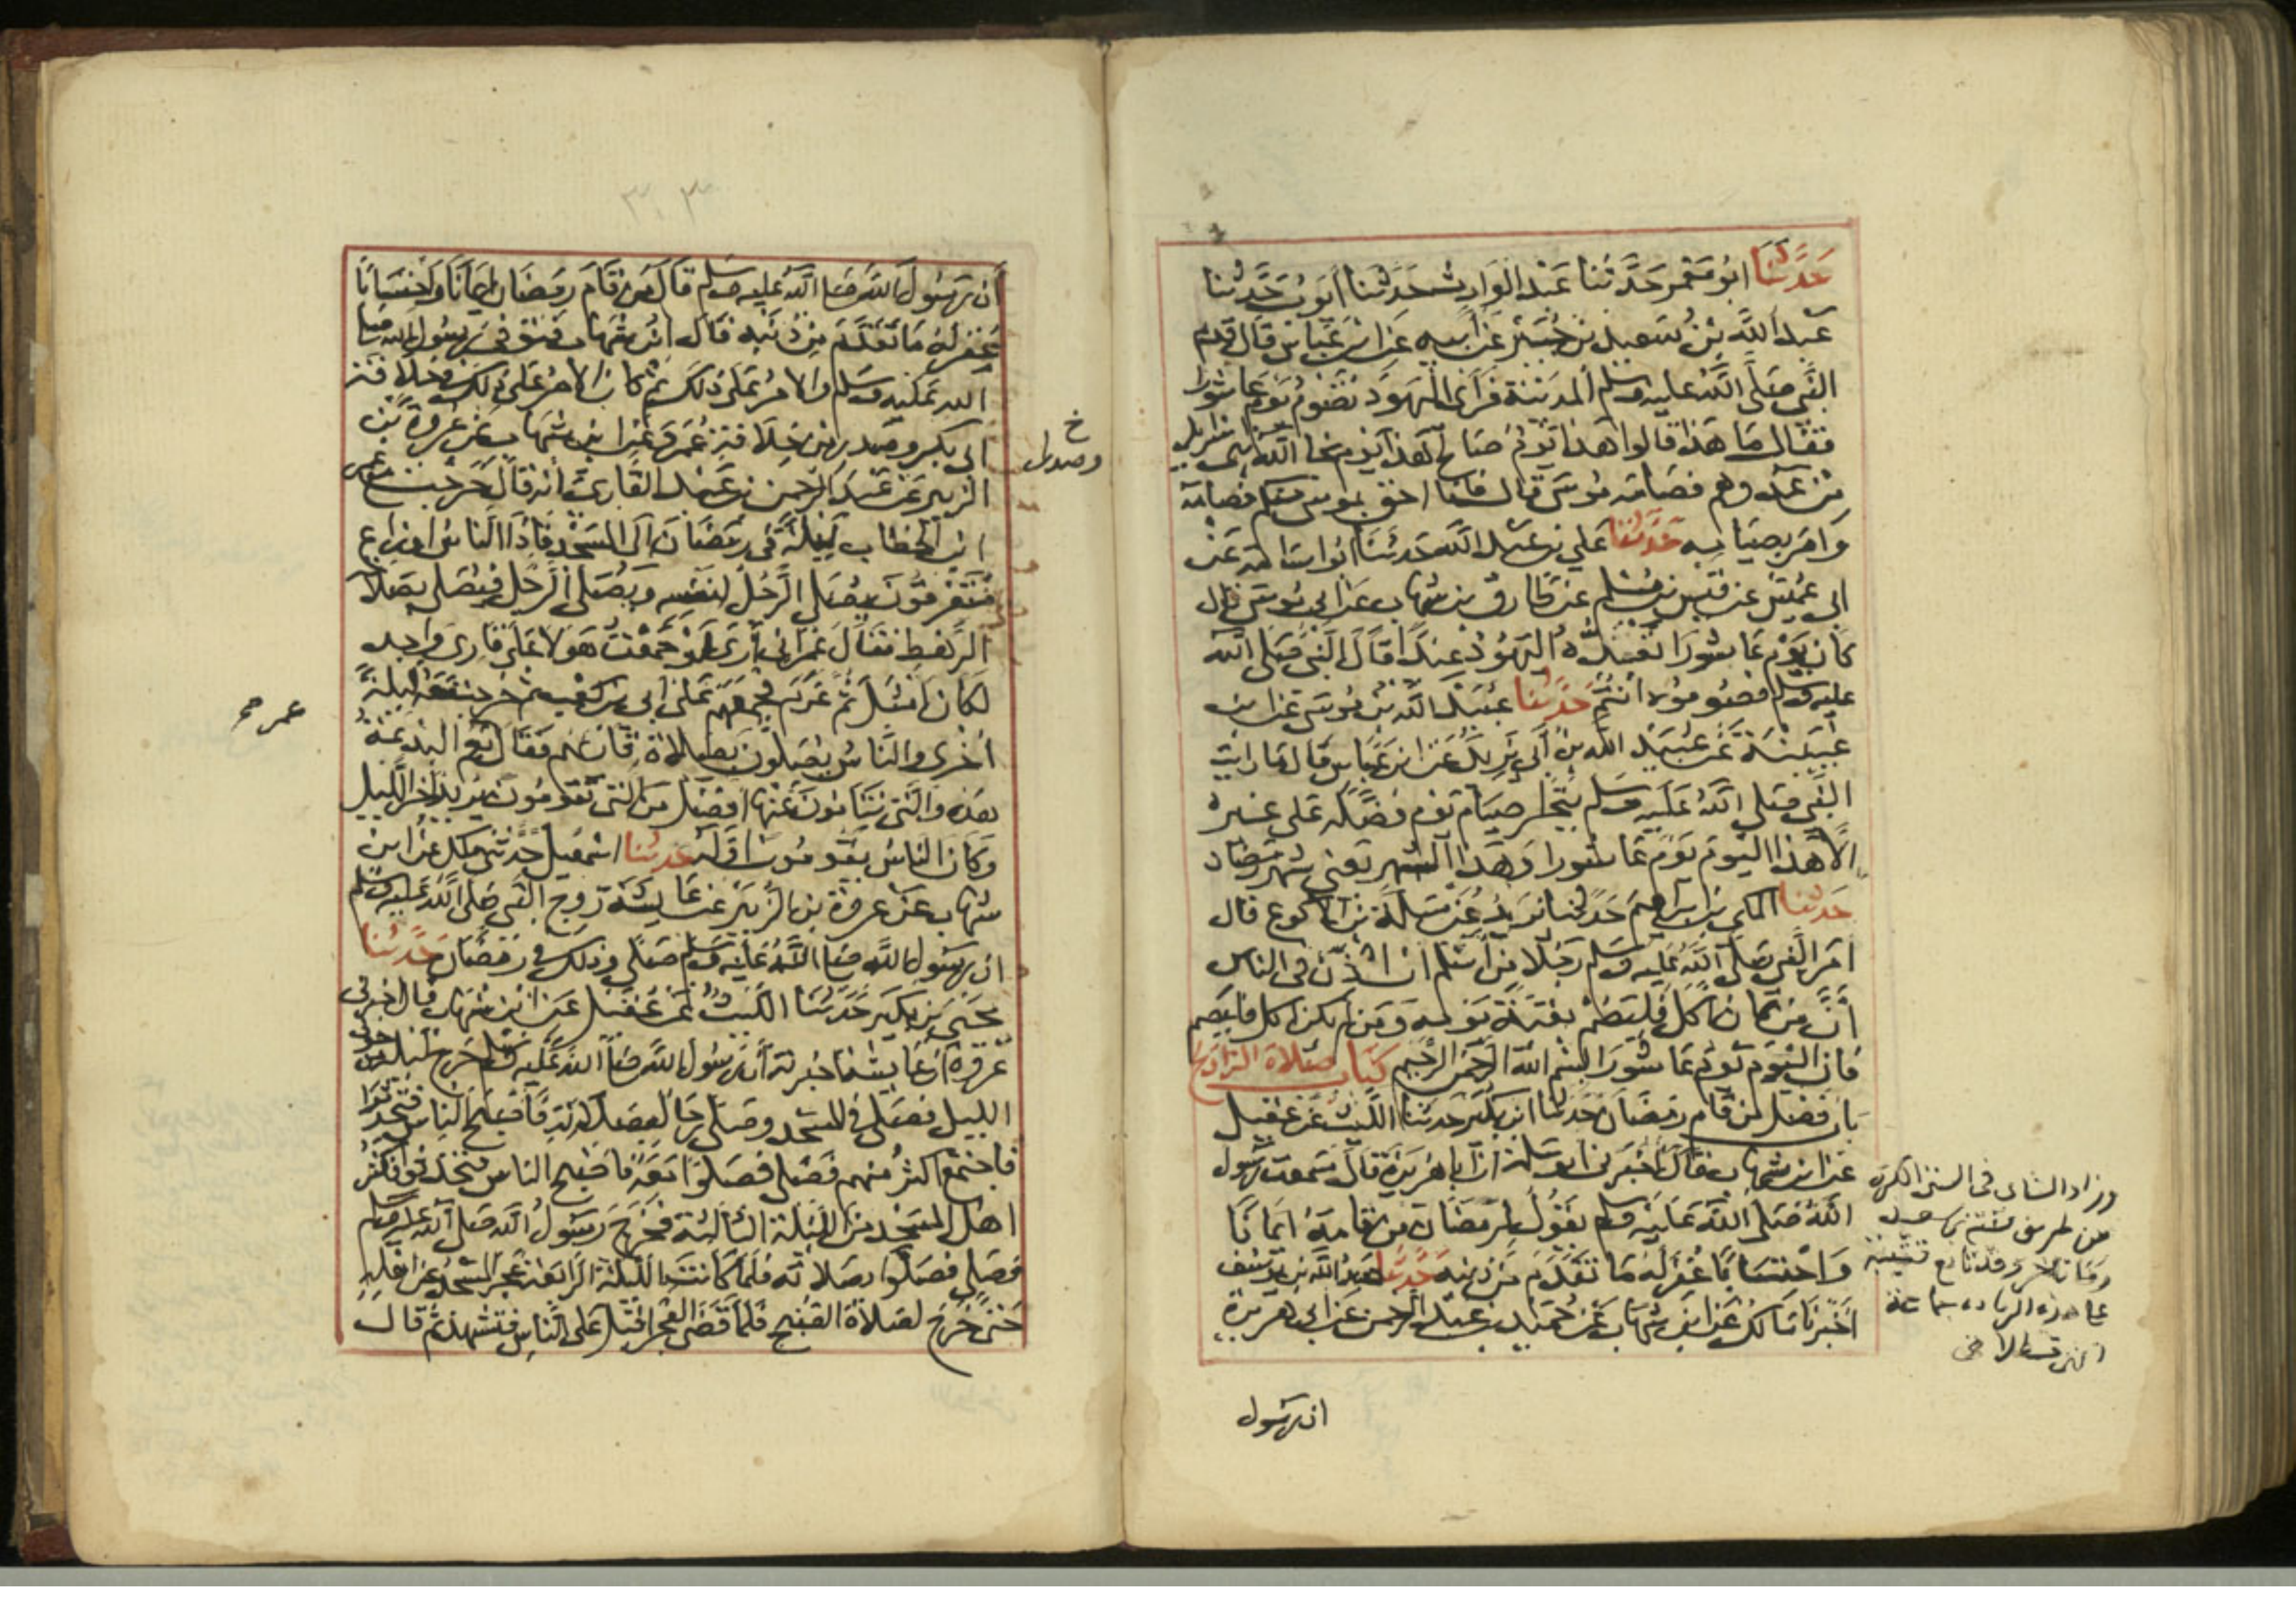 حَدَّثَنَا ابُو مَعْمَر حَدَّثَنا عَبْد الوَارِث حَدَثنا ايوب حَدَّثنا
عَبد اللَّه بنُ سَعِيد بن جُبَير عَن ابيه عَن ابن عَبّاس قالَ قدِم
النَّبي صَلَّى اللَّه عليه وسلم المدينة فَرَأى اليَهوُد تَصُومُ يَوم عَاشورا
فقال مَا هَذا قالوا هَذا يَوم صَالح هَذا يَوم نجا الله بني اسرايل
من عَدوهم فصَامَه مُوسَى قال فانا احق بموسى منكم فصَامَه
وَامَرَ بصيامِه حَدَّثنا علي بن عَبد اللَّه حَدثنا ابُو اسَامة عَن
ابي عُمَيْس عن قيس بن مُسْلم عن طارق بن شهاب عَن ابي مُوسَى قال
كان يَوْم عَاشورا تَعدُّه اليَهُود عيدًا قالَ النبي صَلى الله
عليه وسلم فصُومُوه انتُم حَدثنا عُبَيد اللَّه بن مُوسَى عن ابن
عُيَيْنَة عَن عُبيد الله بن ابي يَزيد عَن ابن عَبّاس قال مَا رايت
النَّبي صَلى اللَّهُ عَليه وسلم يَتَحَرّى صيَام يَوم فضَّله عَلى غيره
الّا هَذا اليَوم يَوم عَاشورا وَهَذا الشهر يَعني شهر رَمضان
حَدثنا المكي بن ابراهيم حَدثنا يَزيد عَن سَلَمَة بن الاكوع قال
امَر النَّبي صَلَّى اللَّه عَليه وسَلم رَجُلا من أسلم ان اذّن في الناس
أنَّ مَن كان اكل فليَصُم بَقيَّة يَومه وَمَن لم يَكن اكل فليَصم
فان اليَوم يَوم عَاشورا بِسْم الله الرَّحمن الرَّحيم كتاب صَلاة التراويح
باب فضل من قَام رمَضان حَدثنا ابن بكَير حَدثنا اللَّيث عَن عقيل
عَن ابن شهاب قالَ اخبرَني ابُو سَلمة ان ابا هُريرَة قالَ سَمعت رسُول
اللَّه صَلى اللَّه عَليه وسلم يَقُول لِرمَضَان مَن قامهُ ايمانًا
وَاحْتسَابًا غُفرَ لَهُ مَا تَقَدَّم من ذَنبه حَدَّثنا عَبدُ الله بن يُوسُف
اَخْبرنا مَالك عَن ابن شهَاب عَن حُمَيد بن عَبد الرحمن عَن ابي هُرَيرَة
ان رسُول
وزاد النساى في السنن الكبرى
من طريق قتيبة بن سعيد
وما تاخر وقد تابع قتيبة
على هذه الزيادة جماعة
انتهى قسطلاني
أن رسُول اللَّه صَلى اللَّه عليه وسَلم قالَ مَن قَامَ رمَضَان ايمانًا وَاحْتسَابًا
غفر لَهُ مَا تَقَدَّم من ذَنبه قالَ ابن شهَاب فتوفى رسُول الله صَلى
الله عَليه وسَلم والامر عَلى ذلك ثم كان الامر عَلى ذلك في خلافة
ابي بكر وصدر من خلافة عُمَر وعَن ابن شهاب عَن عُروَة بن
الزبير عَن عَبد الرحمن بن عَبد القاري أنه قالَ خَرَجت مع عمر
ابن الخطاب لَيلَة في رَمَضان الى المسجد فَاذا النّاس اوزاع
مُتَفرقُونَ يُصَلي الرَّجُل لنَفسه ويُصَلي الرَّجل فيُصَلي بصَلاته
الرَّهط فقَالَ عُمَر اني أرى لَو جَمَعْتُ هَولا عَلى قَارئ وَاحد
لكانَ امثَل ثُمَّ عَزَمَ فجمعَهُم عَلى ابي بن كعب ثم خرجت مَعَه ليلة
اُخرى والنَّاس يُصَلونَ بصَلاة قارئهم فقَالَ نعم البدعَة
هَذه وَالَّتي يَنامُونَ عَنها افضَل من التي تَقومُون يُريد اخر اللَّيل
وَكانَ الناس يَقومُون اوّله حَدثنا اسمعيل حَدَّثني مَالك عَن ابن
شهاب عَن عروَة بن الزُّبَير عَن عَايشة زوج النَّبي صَلى اللَّه عَليه وسلم
ان رسُول اللَّه صَلى اللَّه عَليه وسَلم صَلّى وذلك في رَمضَان حَدَّثنا
يحيى بن بكير حَدَّثنا اللَّيث عَن عُقَيل عَن ابن شهَاب قالَ اخبرني
عُروَة ان عَايشة اخبرته أن رسُول اللَّه صَلى اللَّه عَليه وسَلم خَرجَ لَيلَة من جوف
الليل فصَلى في المسجد وصَلى رجَال بصَلاته فَأصْبَح الناس فتحدثوا
فاجتمع اكثرُ منهم فصَلى فصَلّوا مَعَه فاصبح الناس فتحدثوا فكثر
اهل المسجد من اللَّيلة الثالثة فخَرجَ رَسُول اللَّه صَلى الله عَليه وسلم
فصَلى فصَلّوا بصَلاته فلما كانت اللَّيلة الرَّابعة عَجز المسجد عَن اهله
حَتى خَرَجَ لصَلاة الصُّبح فلَما قضَى الفجر اقبَل عَلى النَّاس فتشهد ثم قال
خ
وصدرا
عمر صح
٣٠٣